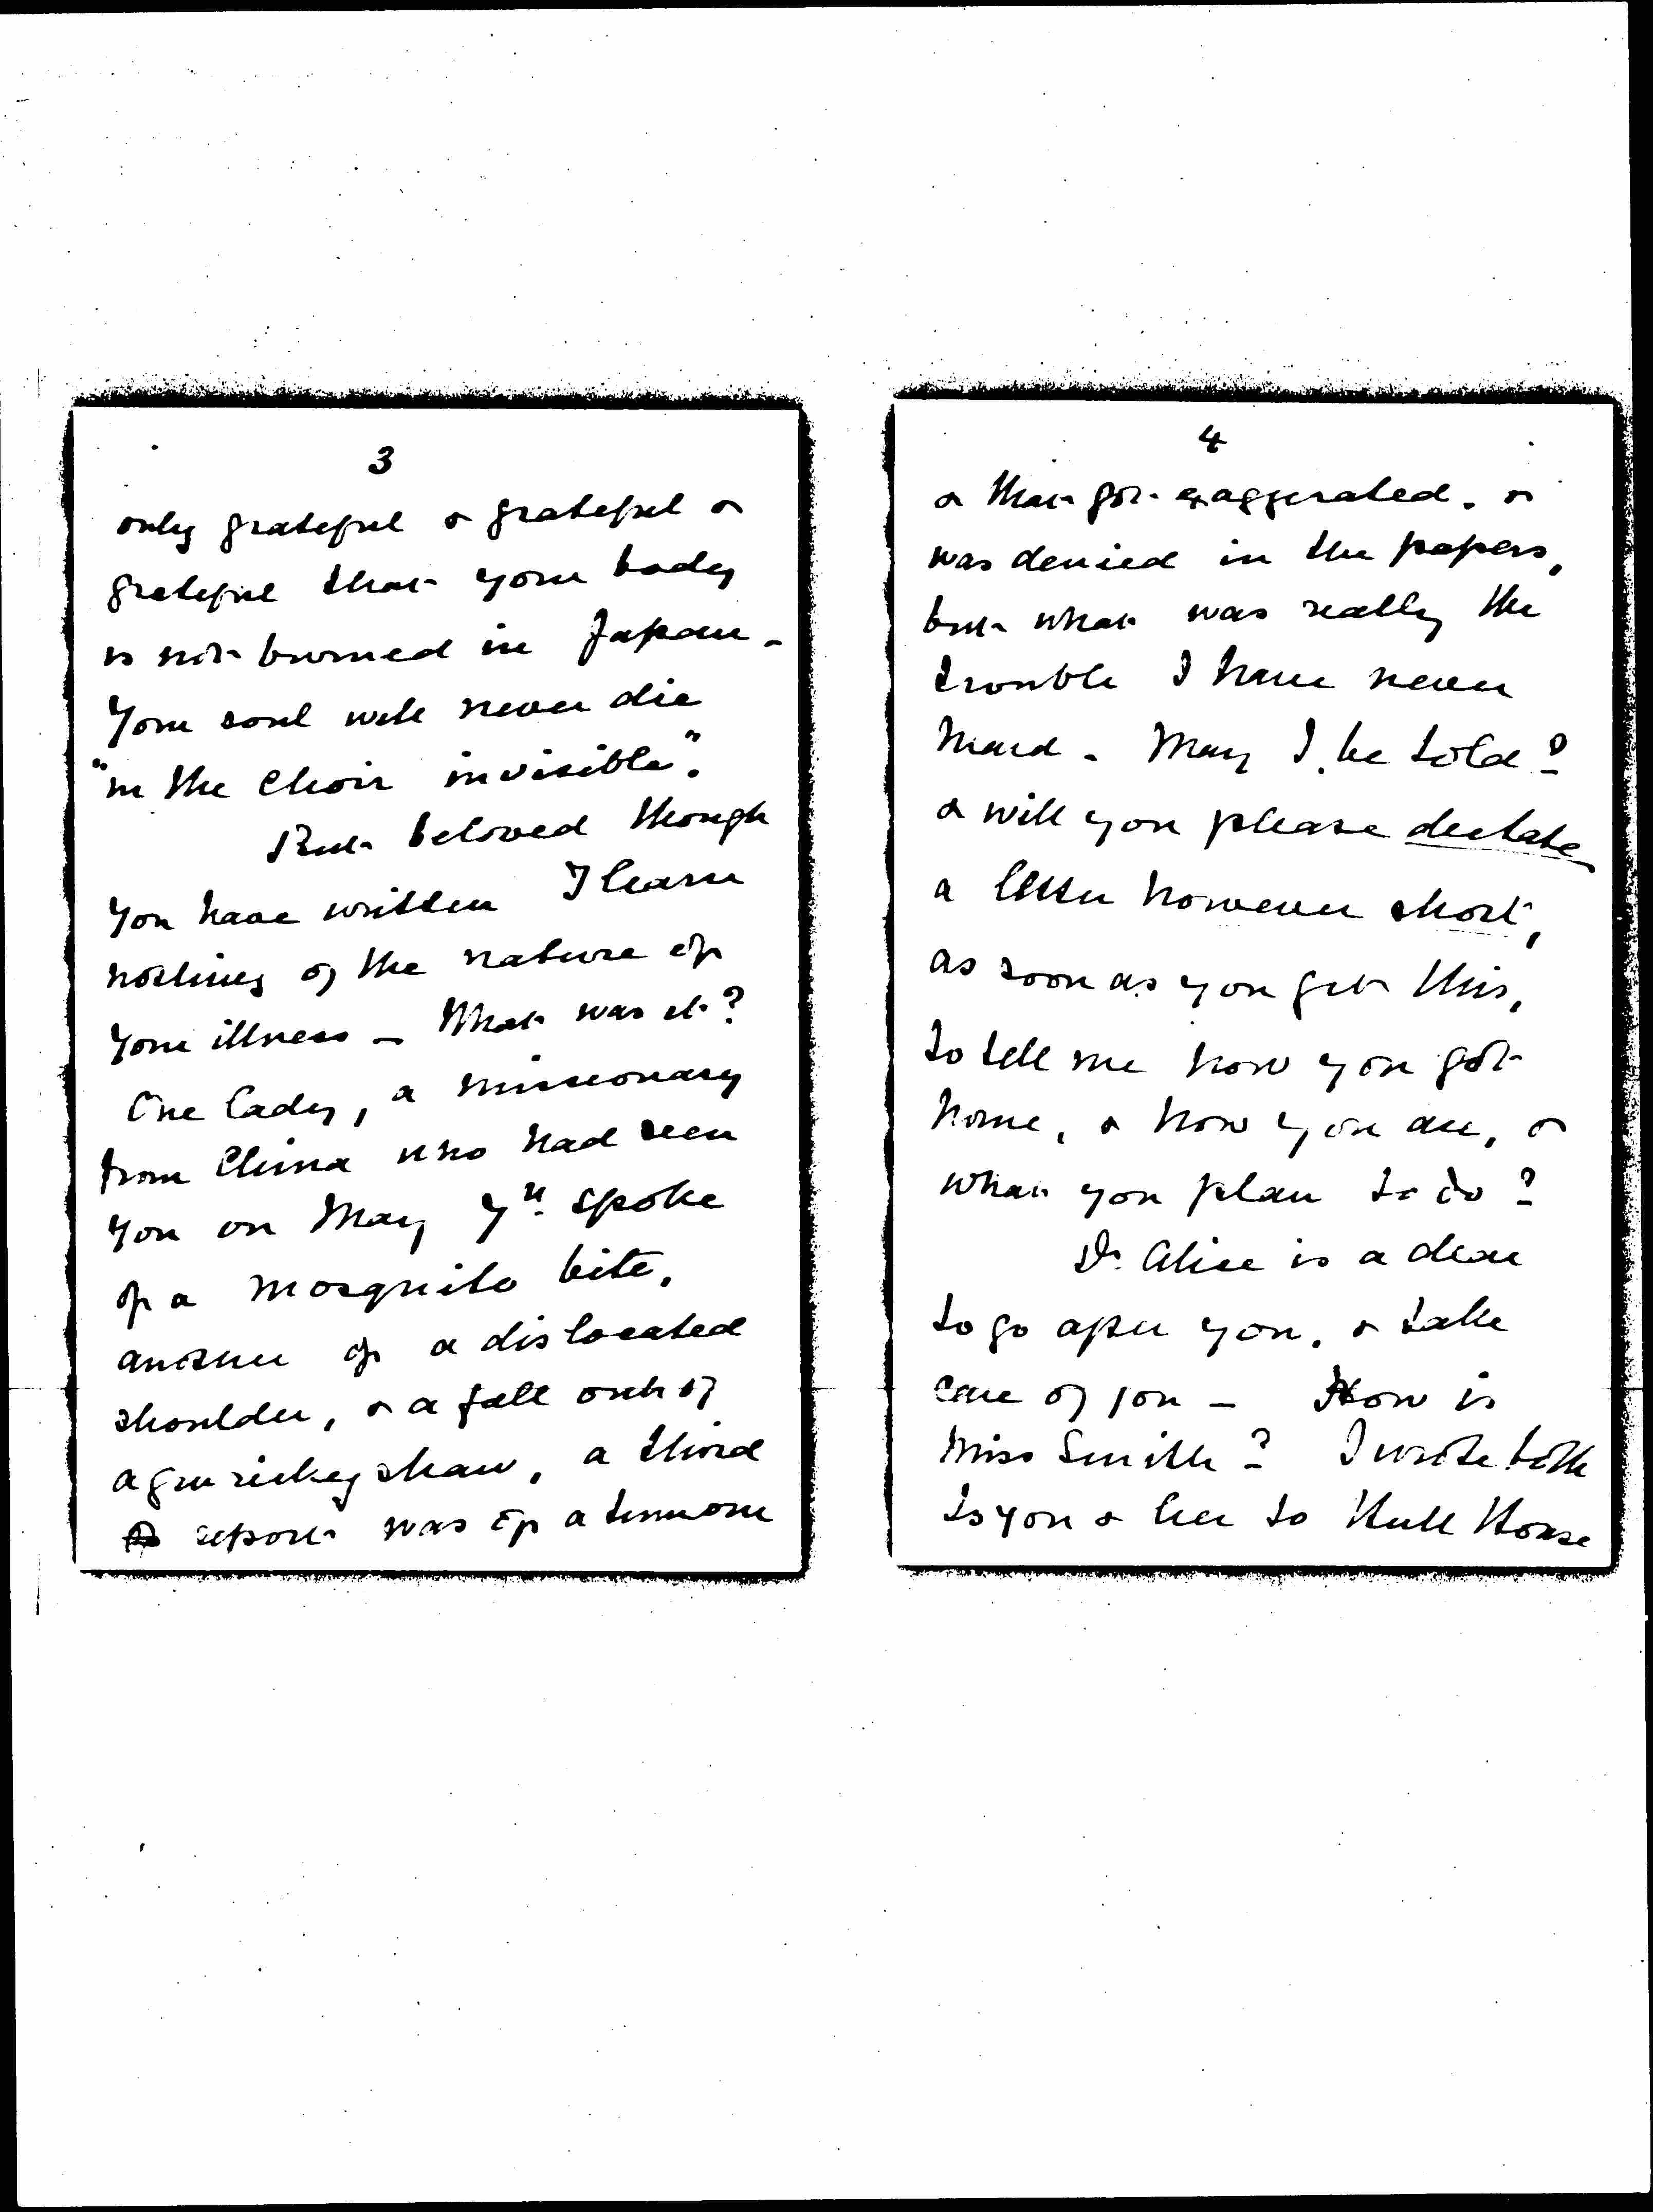 3
only grateful & grateful &
grateful that your body
is not burned in Japan -
Your soul will never die
"in the Choir invisible".
But beloved though
You have written I learn
nothing of the nature of
your illness - What was it?
One lady, a missionary
from China who had seen
you on May 7th spoke
of a mosquito bite,
another of a dislocated
shoulder, & a fall out of
a ginrickeyshaw, a third
report was of a tumour
4
& that got exaggerated. &
was denied in the papers,
but what was really the
trouble I have never
heard - May I be told?
& will you please dictate
a letter however short,
as soon as you get this,
to tell me how you got
home, & how you are, &
what you plan to do?
Dr. Alice is a dear
to go after you, & take
care of you - How is
Miss Smith? I wrote both
to you & her to Hull House